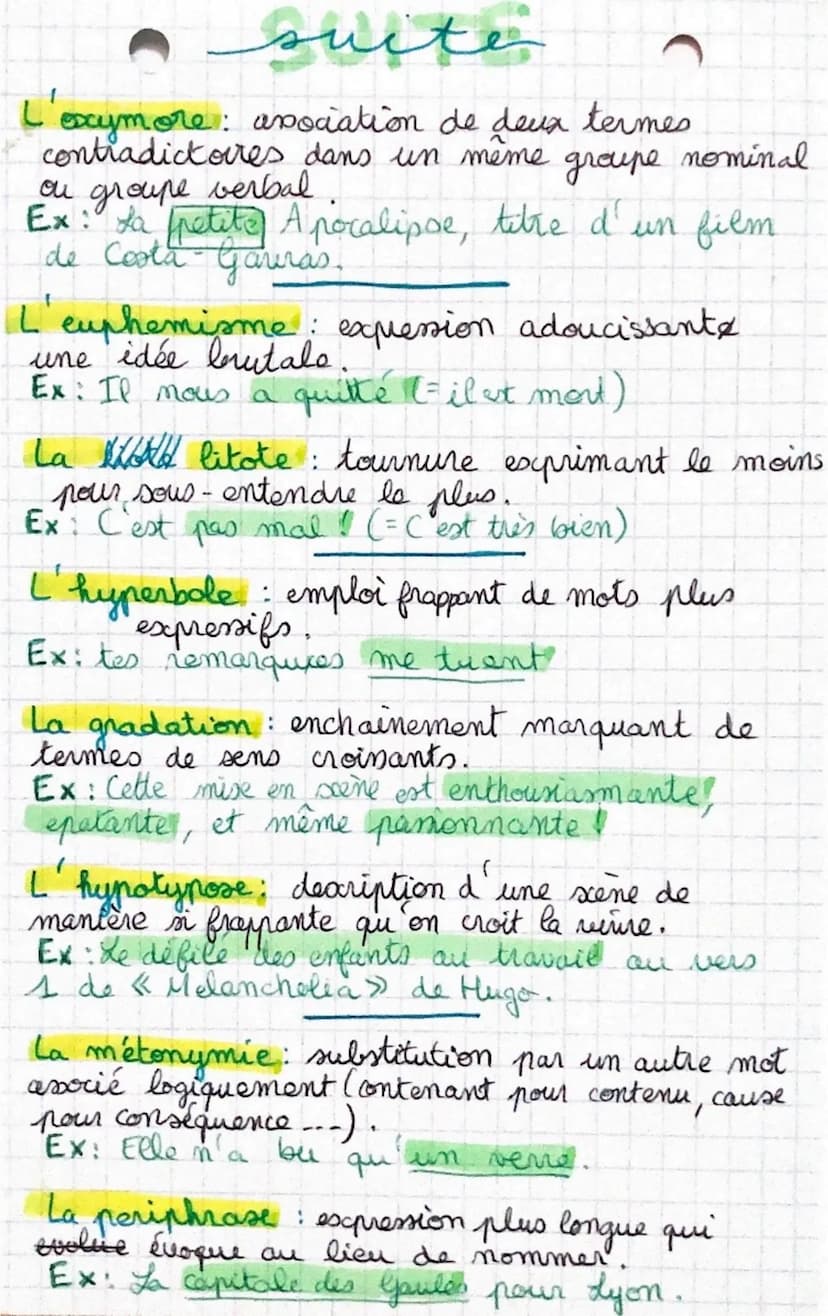 suite
L'oxymore : association de deux termes
contradictoires dans un même groupe nominal
ou groupe verbal.
Ex : La petite Apocalipse, titre d'un film
de Costa-Gauras.
L'euphemisme : expression adoucissante
une idée brutale.
Ex : Il nous a quitté (= il est mort)
La litote : tournure exprimant le moins
pour sous-entendre le plus.
Ex : C'est pas mal ! (= C'est très bien)
L'hyperbole : emploi frappant de mots plus
expressifs.
Ex : tes remarques me tuent
La gradation : enchainement marquant de
termes de sens croissants.
Ex : Cette mise en scène est enthousiasmante,
epatante, et même passionnante !
L'hypotypose : description d'une scène de
manière si frappante qu'on croit la vivre.
Ex : Le défilé des enfants au travail au vers
1 de « Melancholia » de Hugo.
La métonymie : substitution par un autre mot
associé logiquement (contenant pour contenu, cause
pour conséquence ...).
Ex : Elle n'a bu qu'un verre.
La periphrase : expression plus longue qui
évoque au lieu de nommer.
Ex : La capitale des Gaules pour Lyon.